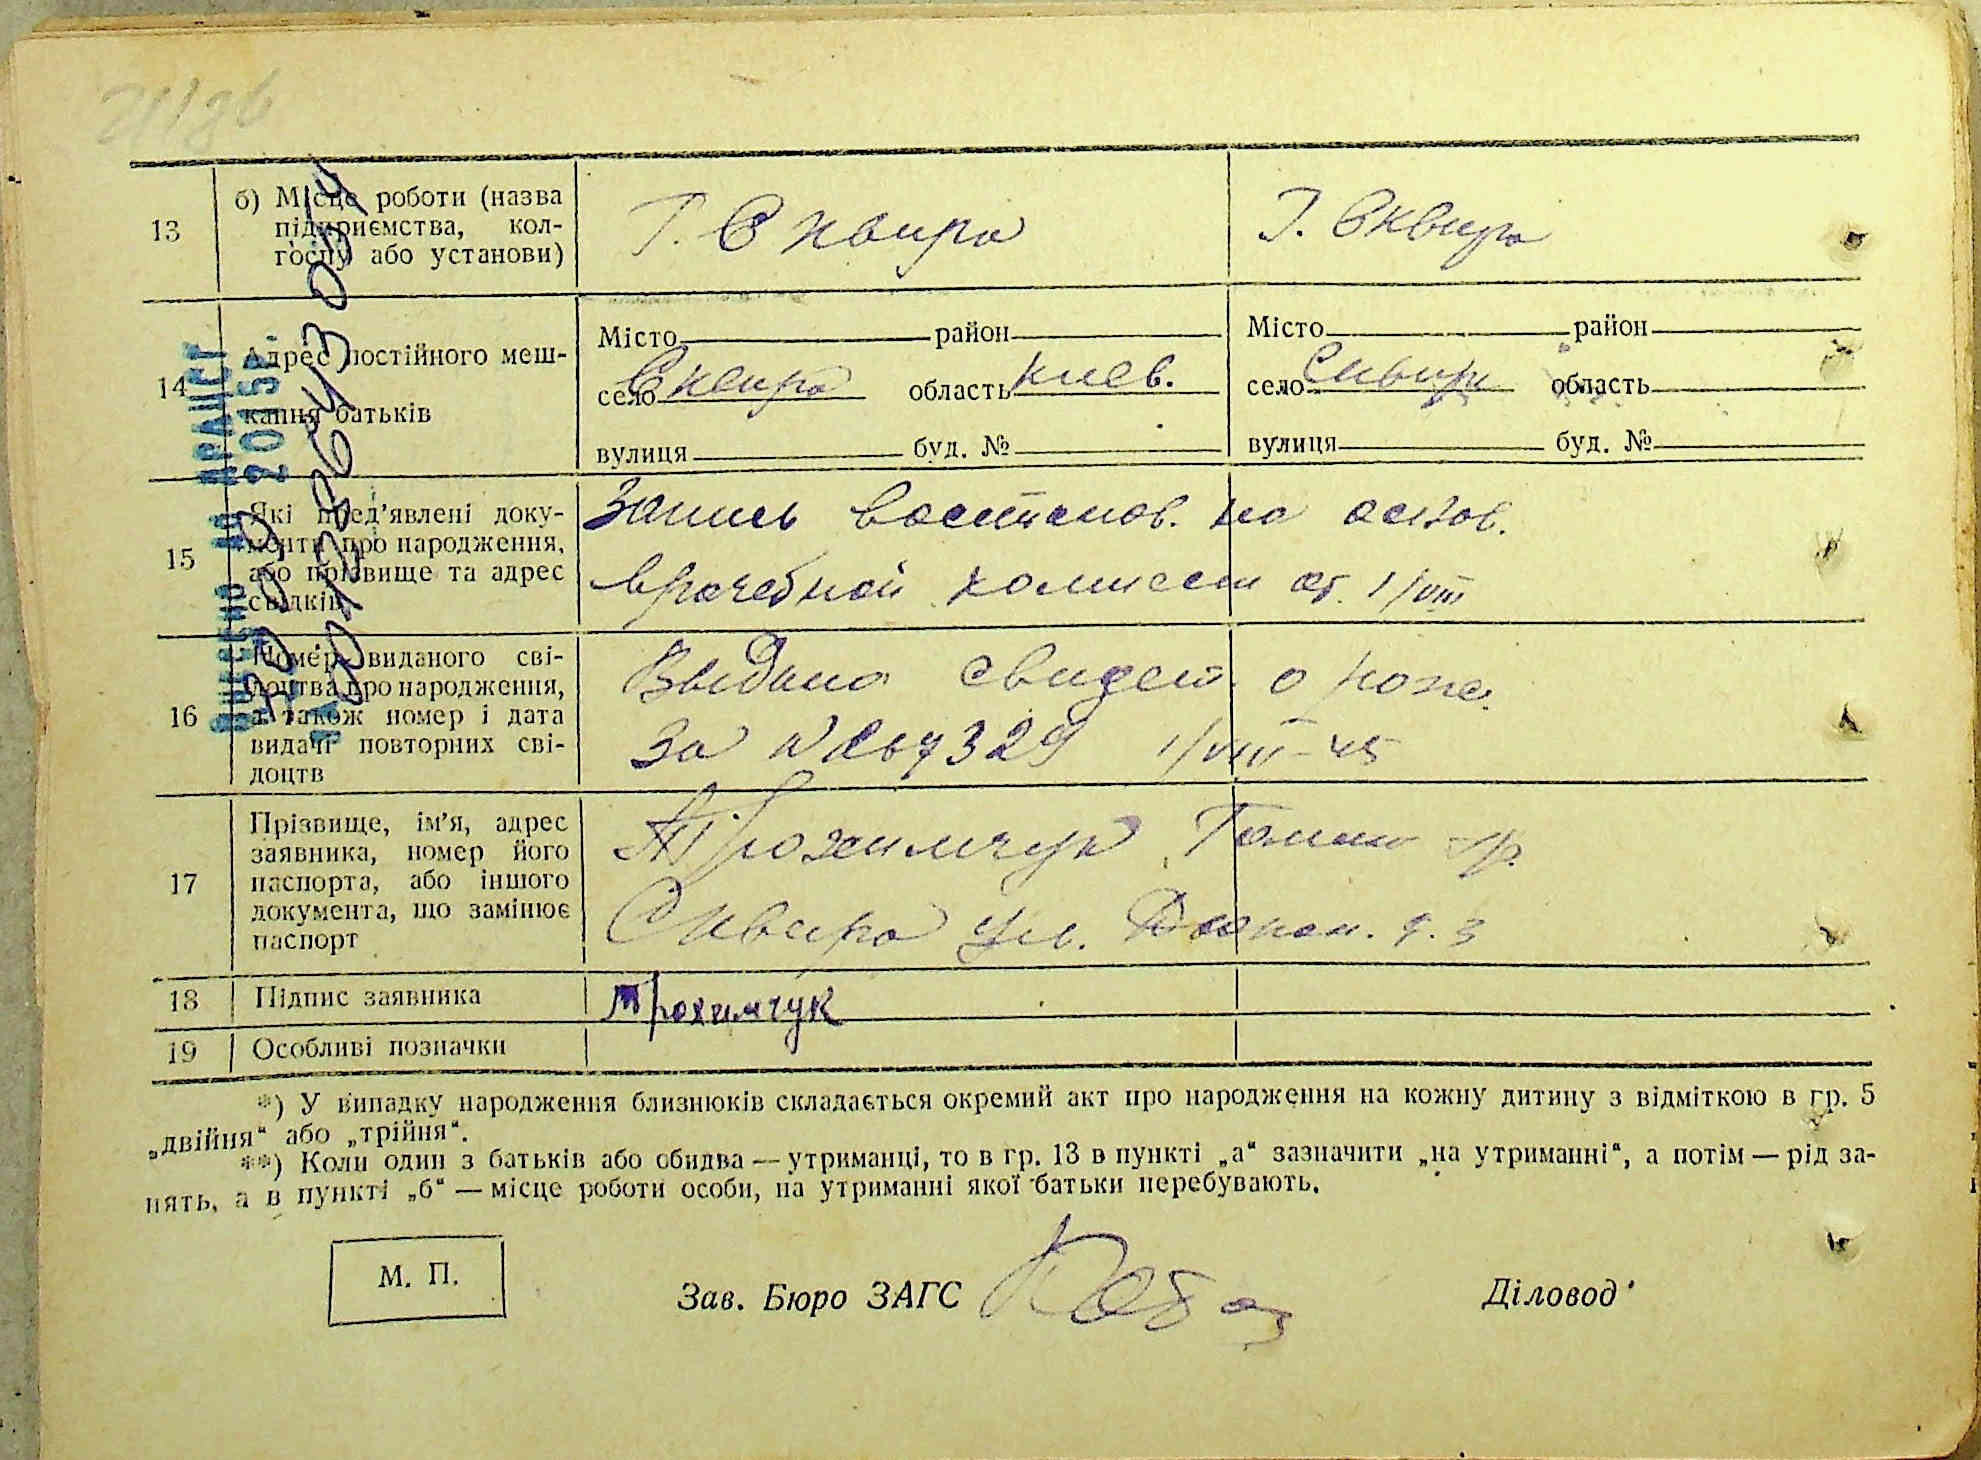 13
б) Місце роботи (назва
підприємства, кол-
госпу або установи)
Г. Сквира
Г. Сквира
14
Адрес постійного меш-
кання батьків
Місто район
село Сквира область Киев.
вулиця буд. №
Місто район
село Сквира область
вулиця буд. №
15
Які пред'явлені доку-
менти про народження,
або прізвище та адрес
свідків
Запись востанов. на основ.
врачебной комиссии от 1/VIII
16
Номер виданого сві-
доцтва про народження,
а також номер і дата
видачі повторних сві-
доцтв
Выдано свидет. о рожд.
За № 1/VIII-45
17
Прізвище, ім'я, адрес
заявника, номер його
паспорта, або іншого
документа, що замінює
паспорт
Трохимчук
Сквира ул. 3
18
Підпис заявника
Трохимчук
19
Особливі позначки
*) У випадку народження близнюків складається окремий акт про народження на кожну дитину з відміткою в гр. 5
„двійня“ або „трійня“.
**) Коли один з батьків або обидва — утриманці, то в гр. 13 в пункті „а“ зазначити „на утриманні“, а потім — рід за-
нять, а в пункті „б“ — місце роботи особи, на утриманні якої батьки перебувають.
М. П.
Зав. Бюро ЗАГС
Діловод
ВНЕСЕНО ДО ДРАЦСГ
2015р.